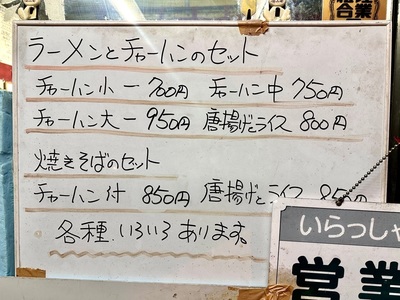 ラーメンとチャーハンのセット
チャーハン小ー700円 チャーハン中 750円
チャーハン大ー950円 唐揚げとライス 800円
焼きそばのセット
チャーハン付 850円 唐揚げとライス 850
各種いろいろあります。
いらっしゃ
営業